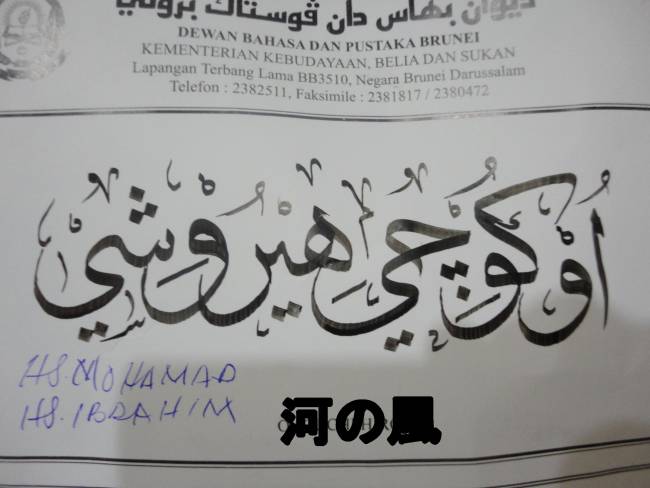 ديوان بهاس دان ڤوستاک بروني
DEWAN BAHASA DAN PUSTAKA BRUNEI
KEMENTERIAN KEBUDAYAAN, BELIA DAN SUKAN
Lapangan Terbang Lama BB3510, Negara Brunei Darussalam
Telefon : 2382511, Faksimile : 2381817 / 2380472
اُوْکُوْچِي هِيْرُوْشِي
HS.MOHAMAD
HS.IBRAHIM
河の風